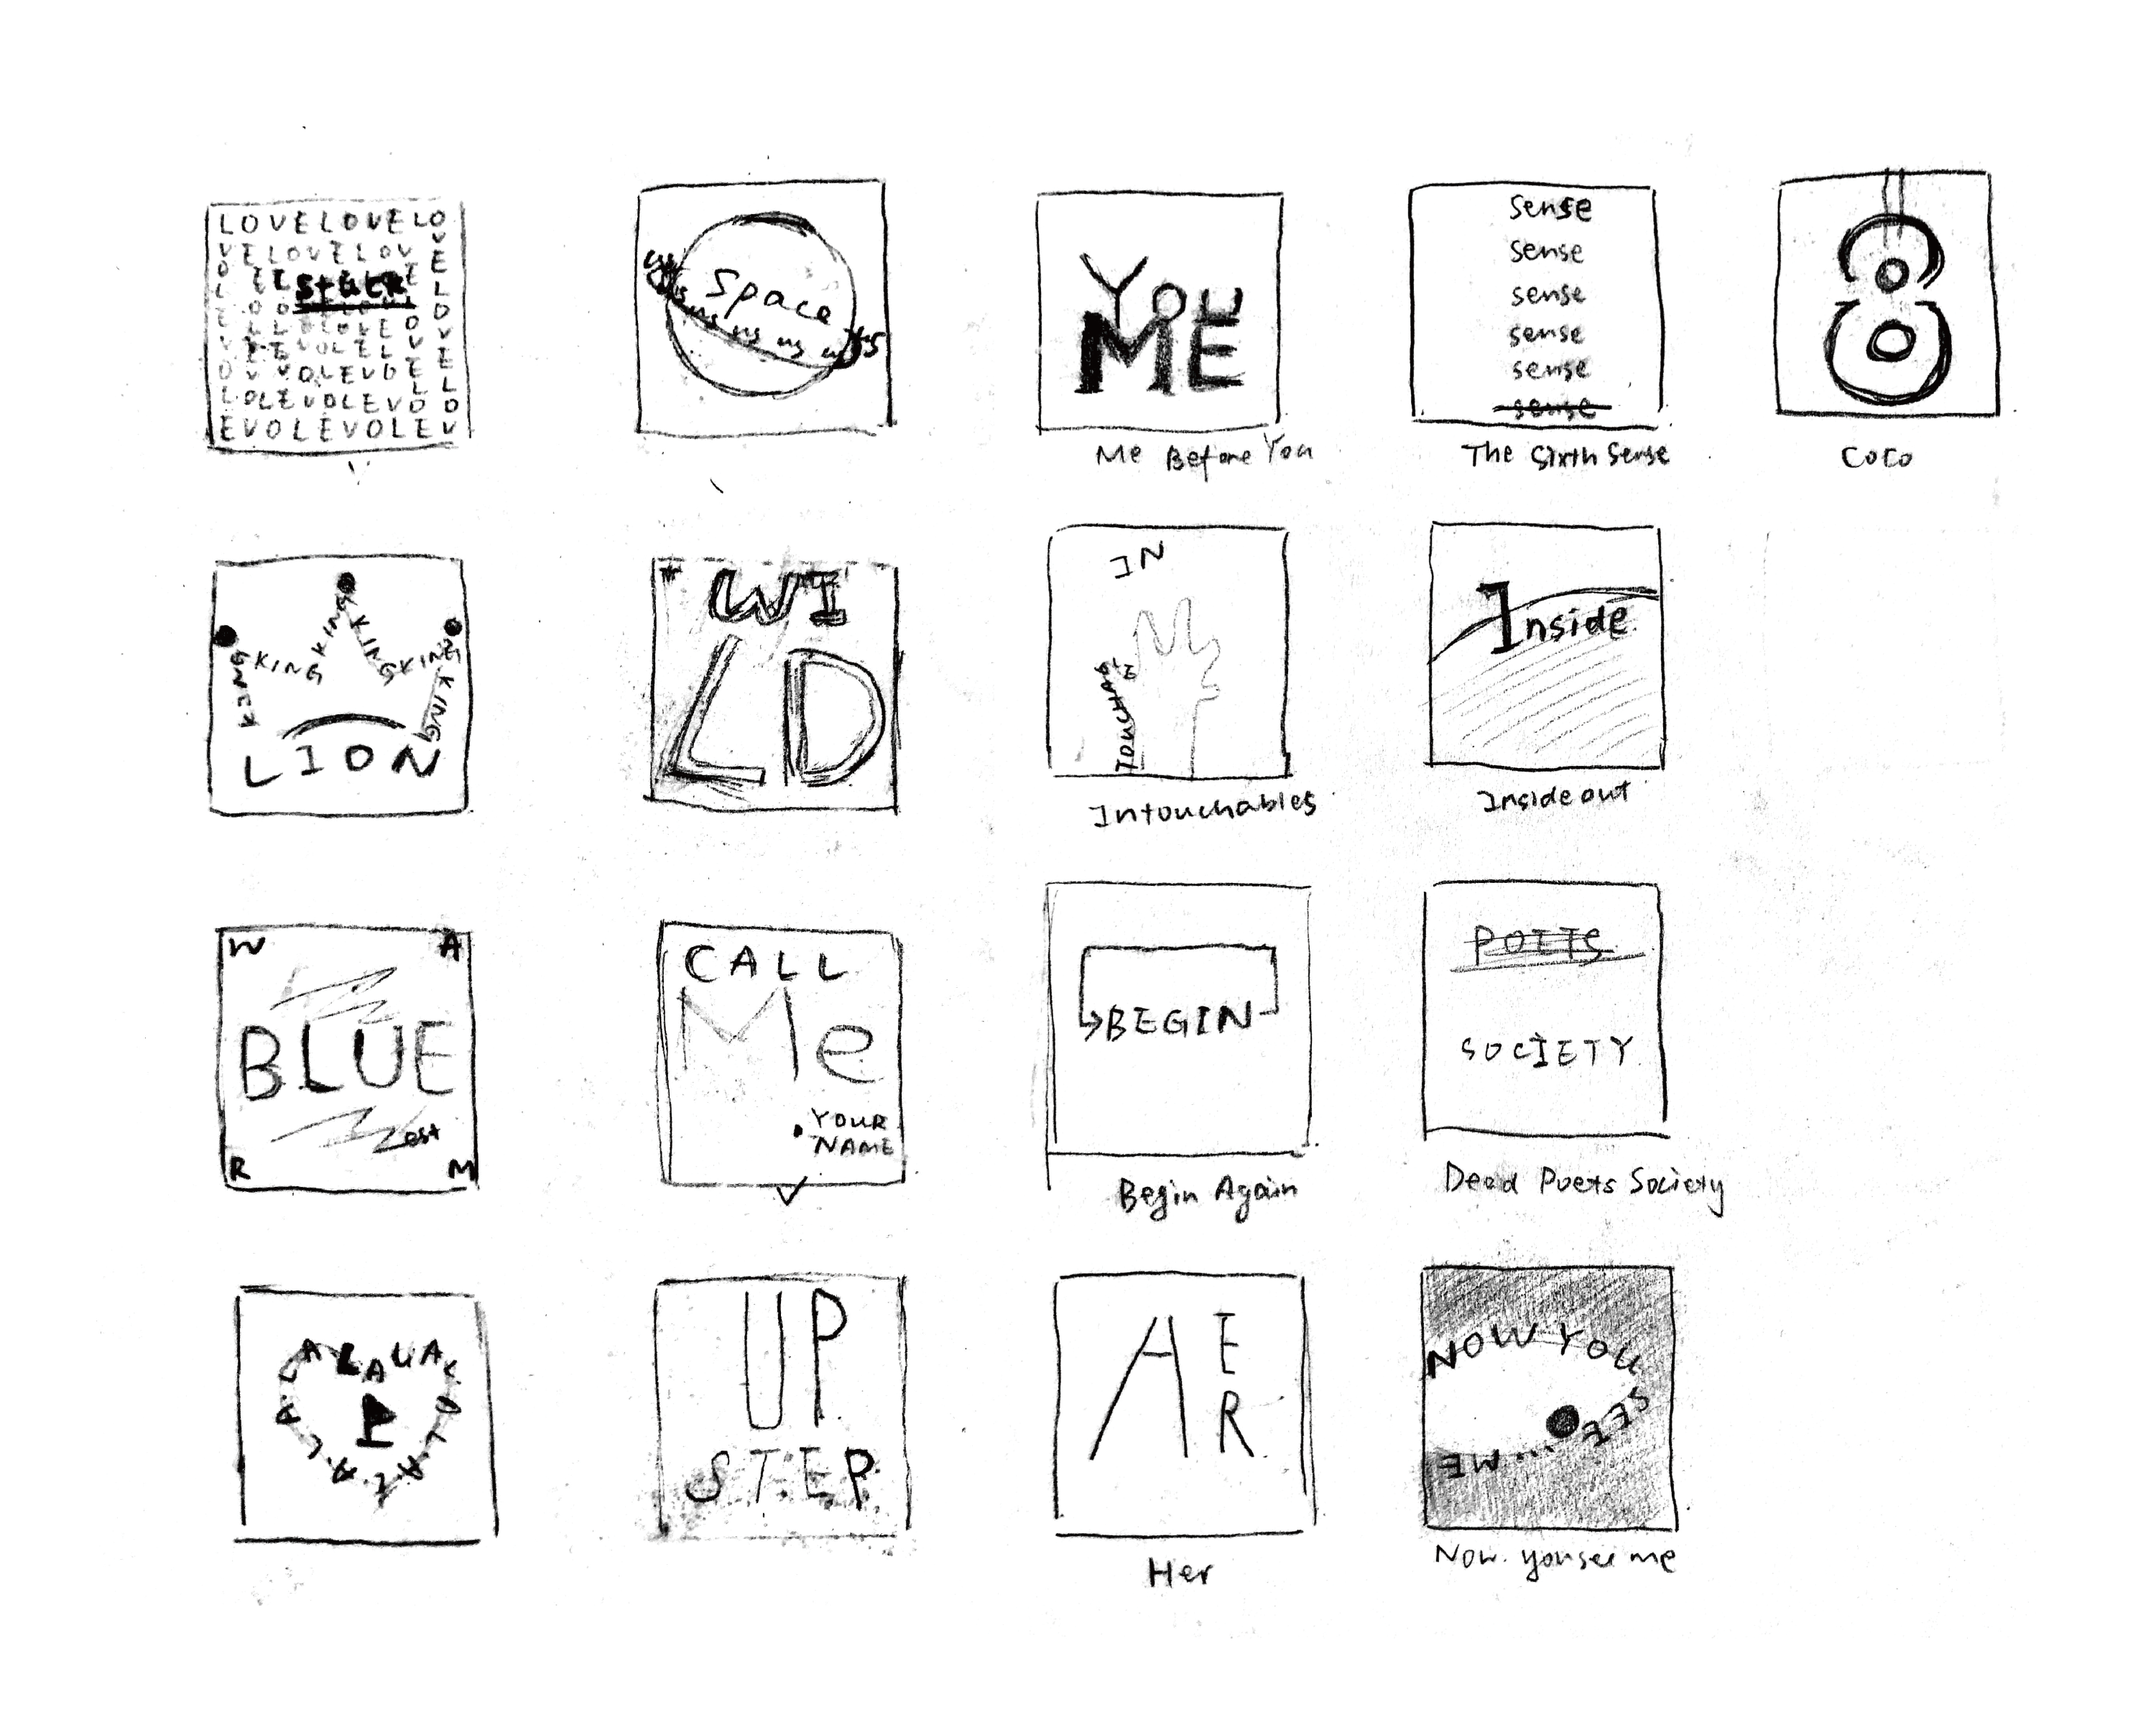 LOVELOVELO
VELOVELOV
STUCK
EVOLEVOLEV
Space
us us us us us us
YOU
ME
Me Before You
sense
sense
sense
sense
sense
sense
The Sixth Sense
COCO
KING KING KING KING KING KING KING
LION
WI
LD
IN
TOUCHABLE
Intouchables
Inside
Inside out
W A
BLUE
est
R M
CALL
Me
YOUR
NAME
BEGIN
Begin Again
POETS
SOCIETY
Dead Poets Society
UP
STEP
E
R
Her
NOW YOU
SEE... ME
Now you see me